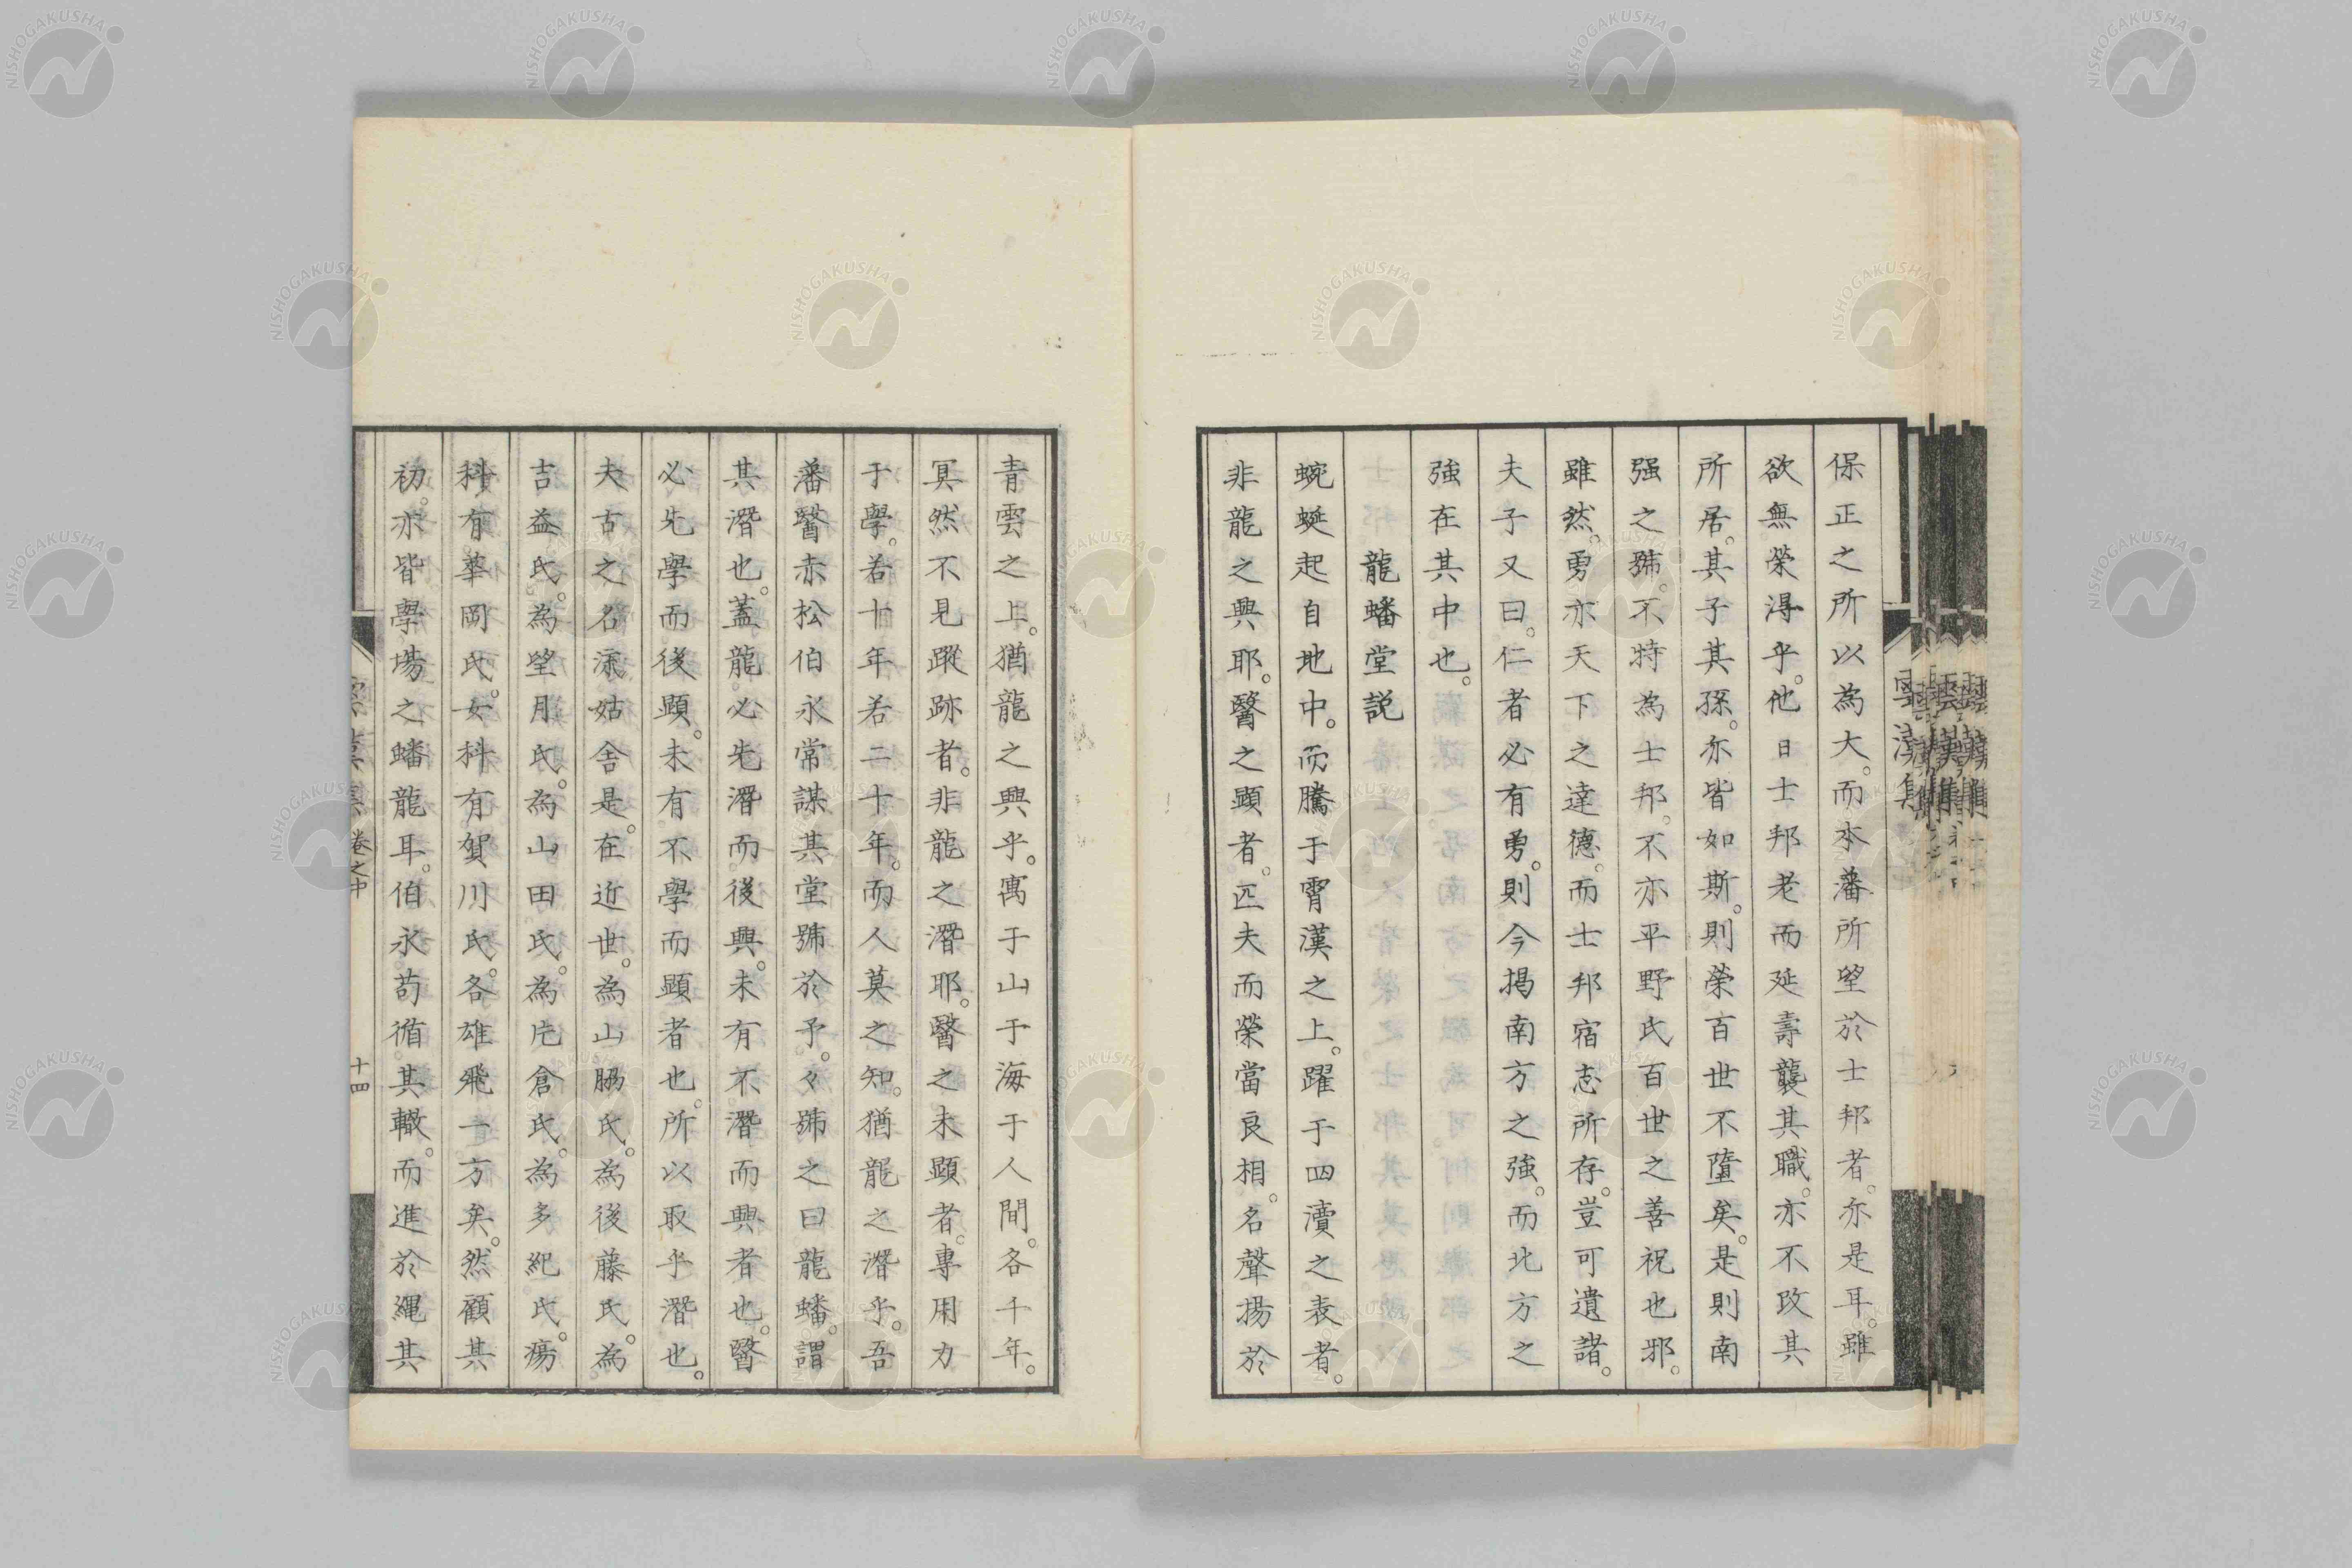 保正之所以為大。而本藩所望於士邦者。亦是耳。雖
欲無榮得乎。他日士邦老而延壽襲其職。亦不改其
所居。其子其孫。亦皆如斯。則榮百世不墮矣。是則南
强之號。不特為士邦。不亦平野氏百世之善祝也邪。
雖然。勇亦天下之達德。而士邦宿志所存。豈可遺諸。
夫子又曰。仁者必有勇。則今揭南方之強。而北方之
強在其中也。
龍蟠堂説
蜿蜒起自地中。而騰于霄漢之上。躍于四瀆之表者。
非龍之興耶。醫之顕者。匹夫而榮當良相。名聲揚於
青雲之上。猶龍之興乎。寓于山于海于人間。各千年。
冥然不見蹤跡者。非龍之潛耶。醫之未顕者。專用力
于學。若十年若二十年。而人莫之知。猶龍之潛乎。吾
藩醫赤松伯永常謀其堂號於予。々號之曰龍蟠。謂
其潛也。蓋龍必先潛而後興。未有不潛而興者也。醫
必先學而後顕。未有不學而顕者也。所以取乎潛也。
夫古之名流姑舍是。在近世。為山脇氏。為後藤氏。為
吉益氏。為望月氏。為山田氏。為片倉氏。為多紀氏。瘍
科有華岡氏。女科有賀川氏。各雄飛一方矣。然顧其
初。亦皆學場之蟠龍耳。伯永苟循其轍。而進於繩其
卷之中
十四
NISHOGAKUSHA